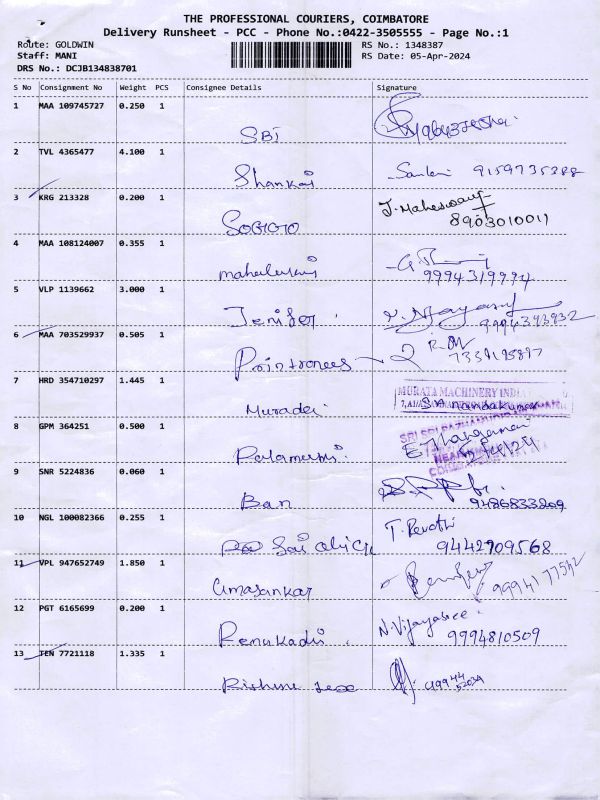 THE PROFESSIONAL COURIERS, COIMBATORE
Delivery Runsheet - PCC - Phone No.:0422-3505555 - Page No.:1
Route: GOLDWIN RS No.: 1348387
Staff: MANI RS Date: 05-Apr-2024
DRS No.: DCJB134838701
S No Consignment No Weight PCS Consignee Details Signature
1 MAA 109745727 0.250 1
SBI
2 TVL 4365477 4.100 1
Shankar 9159735288
3 KRG 213328 0.200 1
J. Maheswary
8903010011
4 MAA 108124007 0.355 1
mahalaxmi 9994319994
5 VLP 1139662 3.000 1
Jenifer
6 MAA 703529937 0.505 1
7 HRD 354710297 1.445 1
MURATA MACHINERY INDIA
8 GPM 364251 0.500 1
9 SNR 5224836 0.060 1
Ban 9486833209
10 NGL 100082366 0.255 1
T. Revathi
9442709568
11 VPL 947652749 1.850 1
Umasankar 9994177542
12 PGT 6165699 0.200 1
N. Vijayasree
Renukadevi 9994810509
13 TEN 7721118 1.335 1